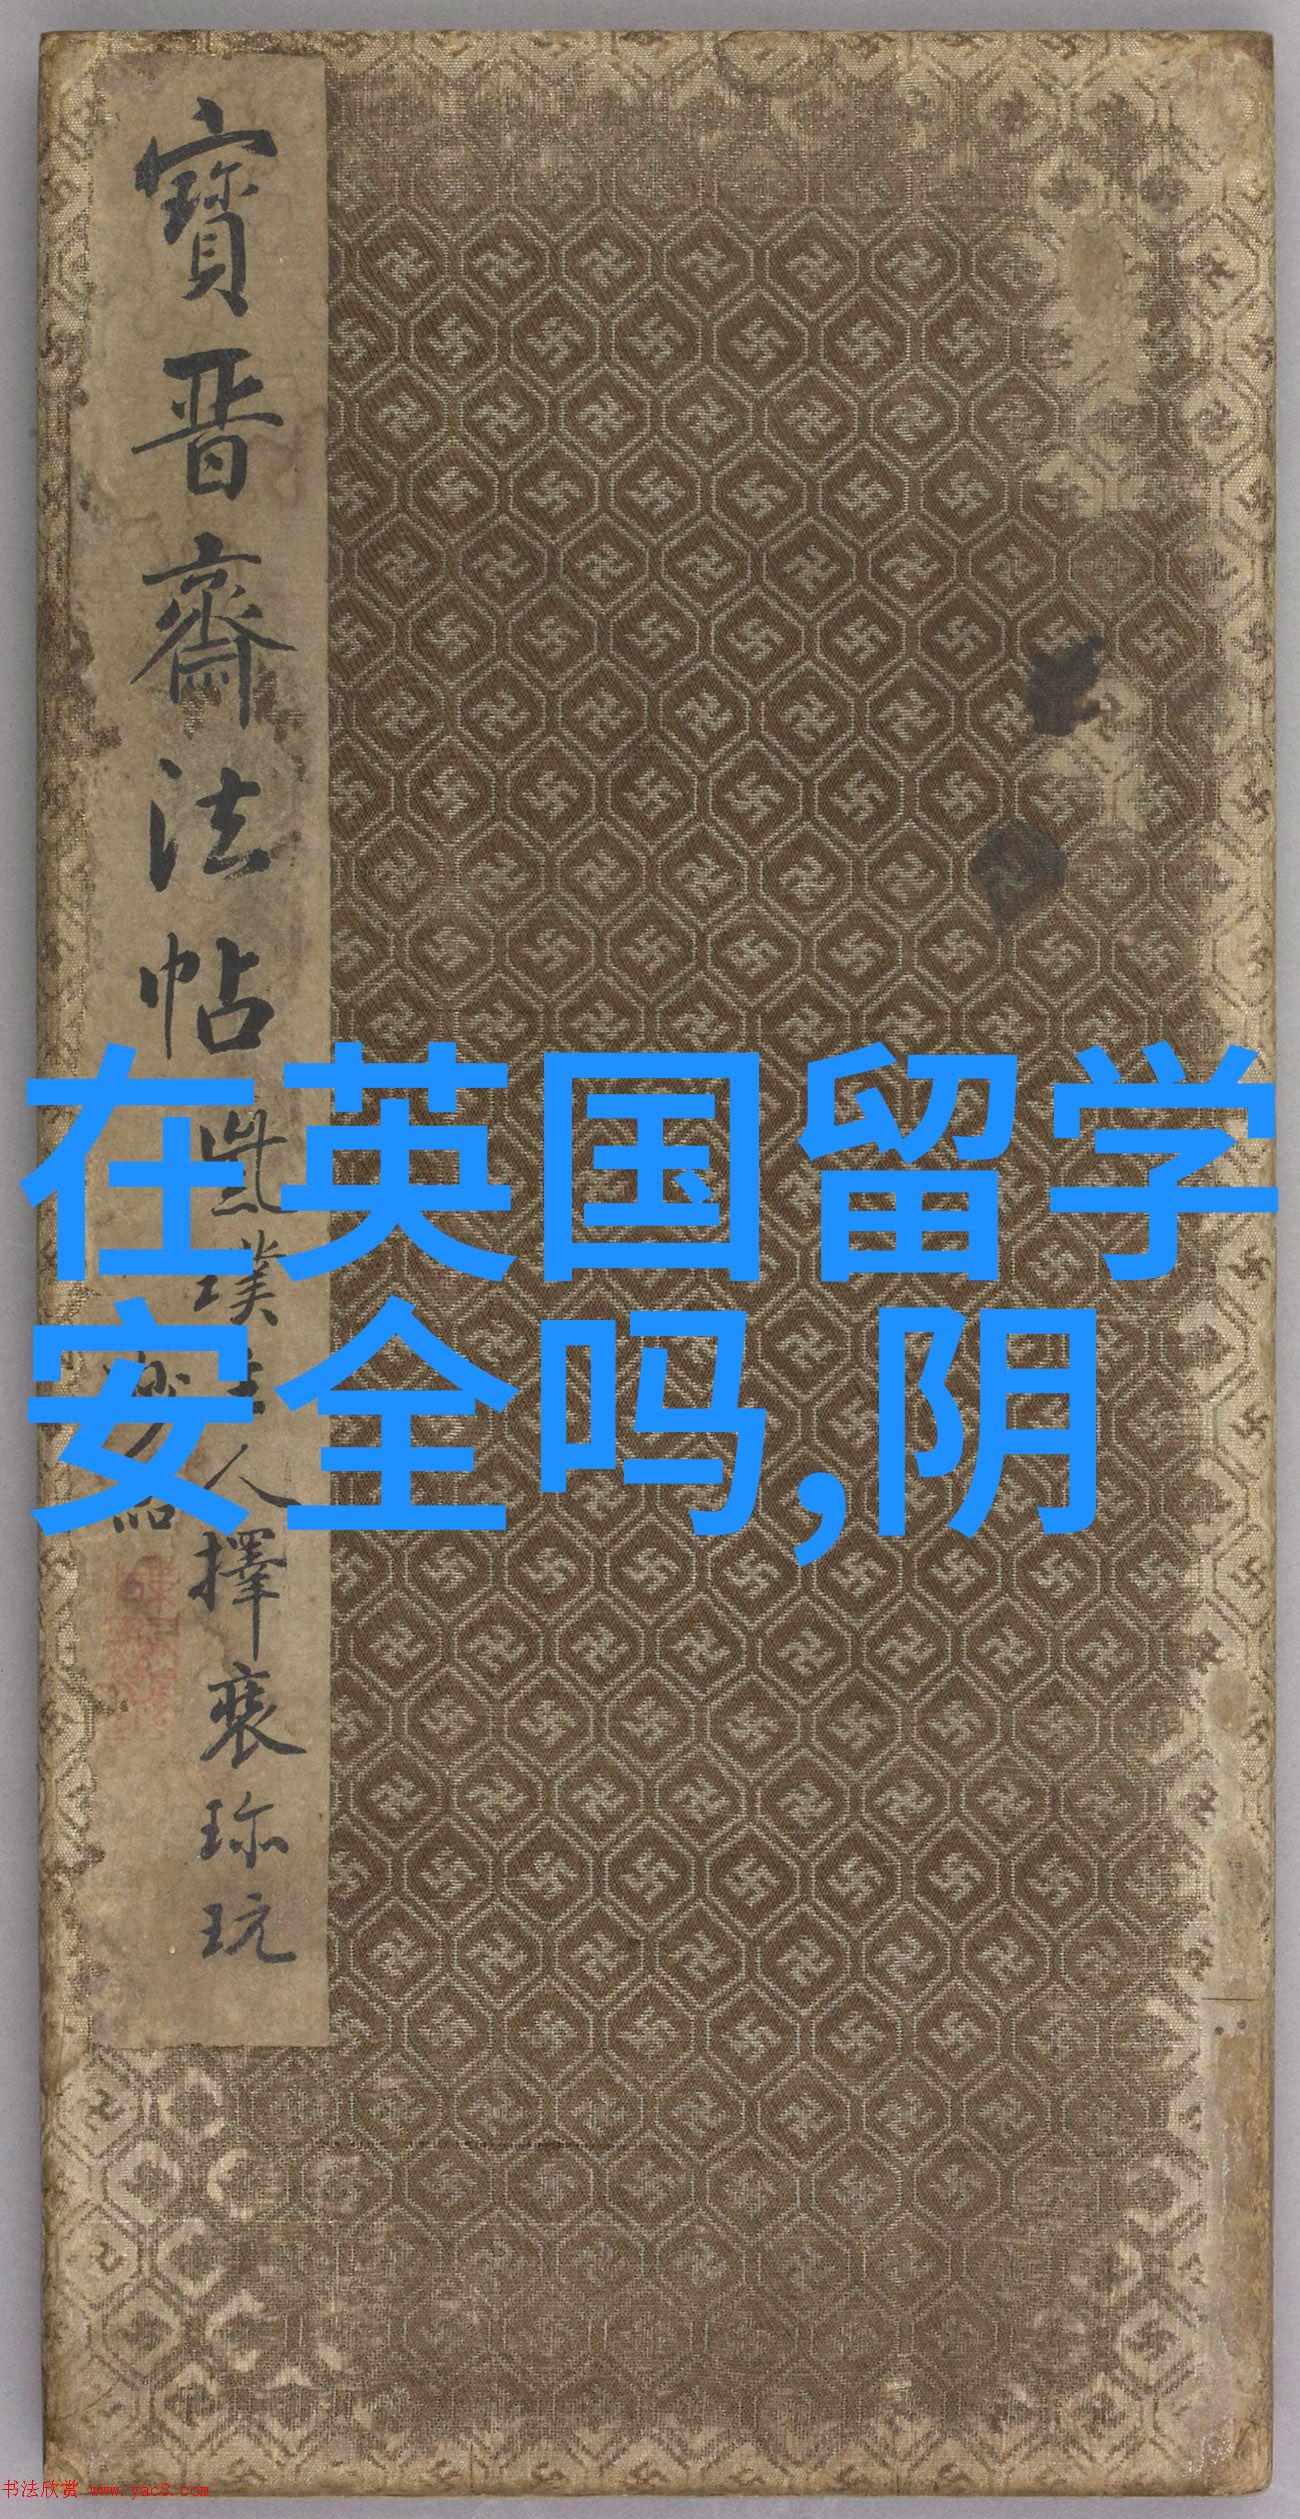 寳晉齋法帖
人擇裒珎玩
在英国留学
安全吗,阴
书法欣赏 www.yac8.com